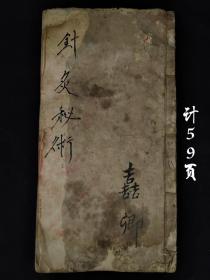 針灸秘術
嚞卿
计59页